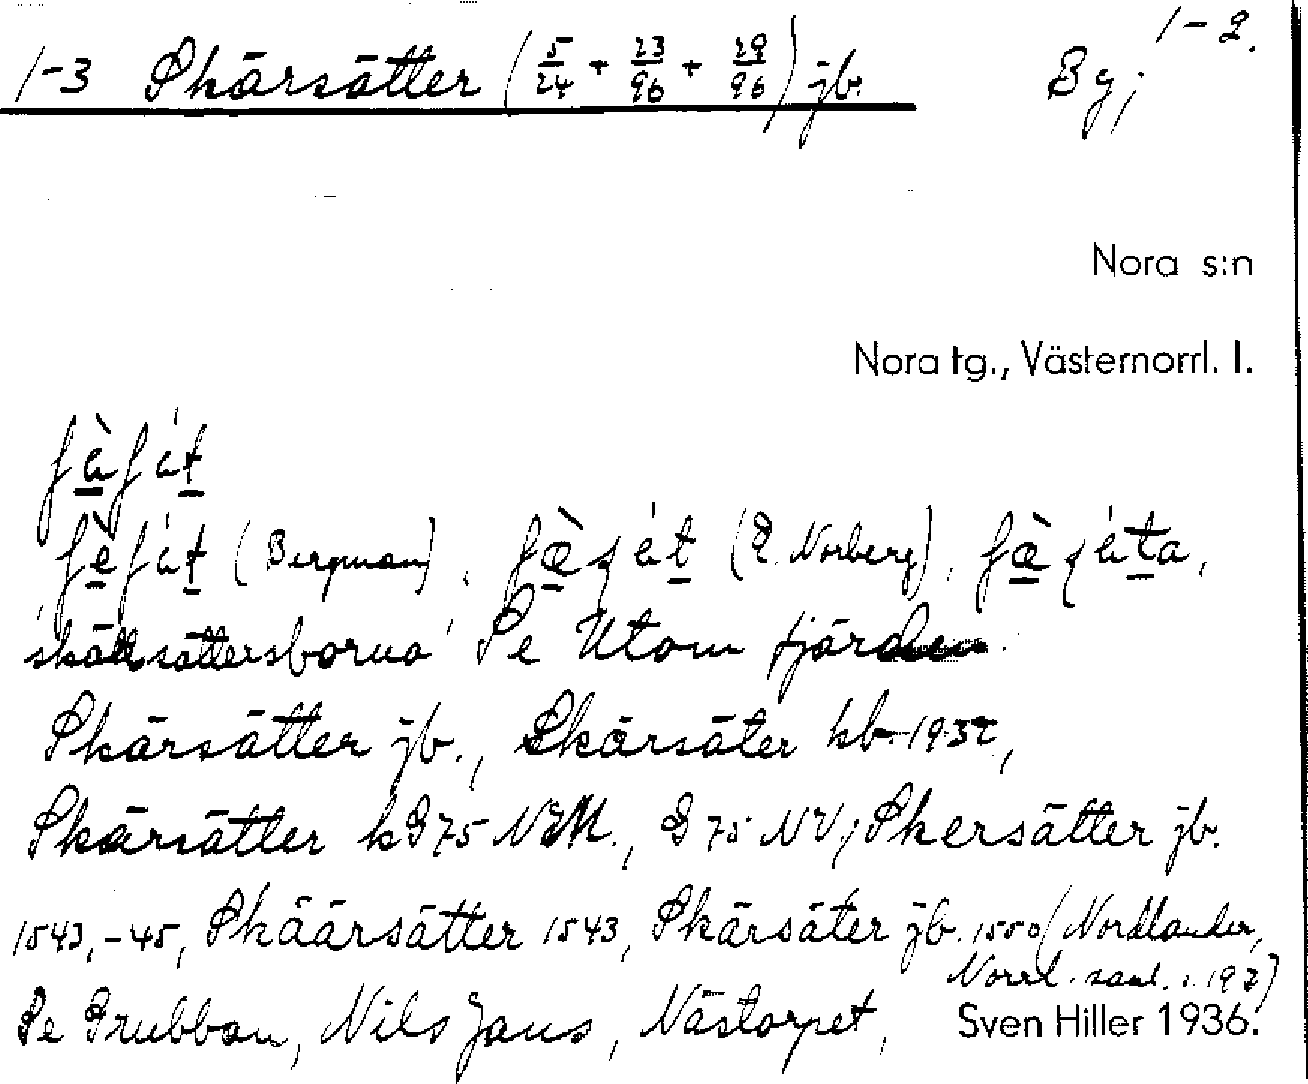 1-3 Skärsätter (5/24 + 23/96 + 29/96) jb. By; 1-2.
Nora s:n
Nora tg., Västernorrl. l.
(Bergman), (E. Norberg),
sättersborna Se Utom fjärden.
Skärsätter jb., Skärsäter kb. 1932,
Skärsätter kG 75 NEM., G 75 NV; Skersätter jb.
1543,-45, Skäärsätter 1543, Skärsäter jb. 1550 (Nordlander,
Norrl. saml. s. 197)
Se Grubban, Nils Jans, Nästorpet,
Sven Hiller 1936.